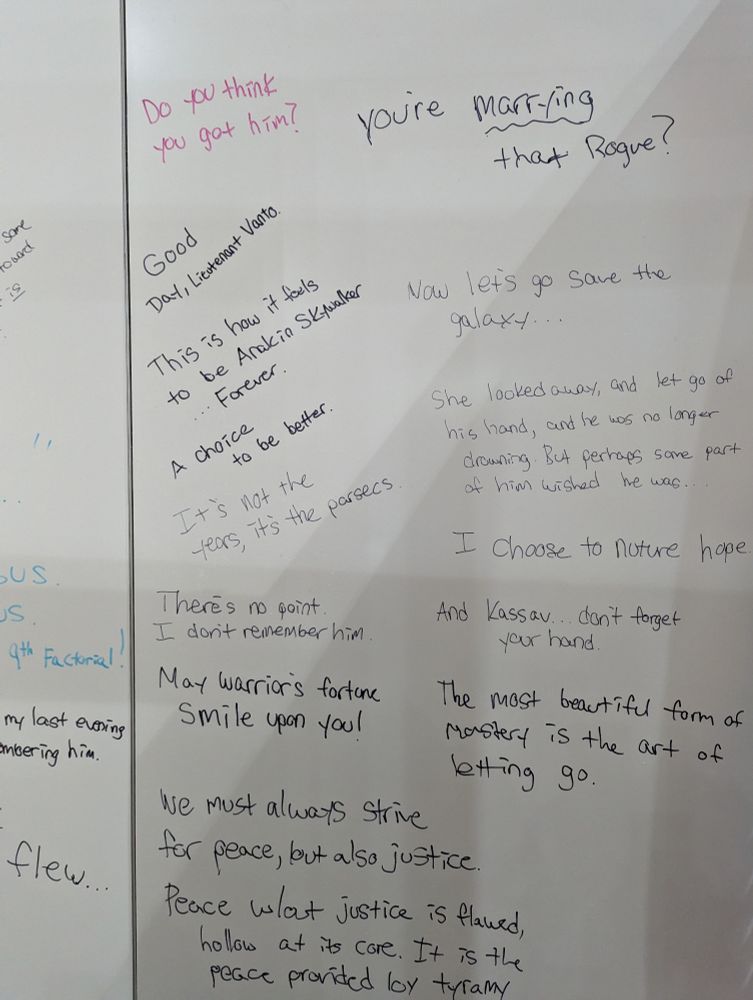 Do you think
you got him?
you're marrying
that Rogue?
Good
Day, Lieutenant Vanto.
This is how it feels
to be Anakin Skywalker
... Forever.
A choice
to be better.
It's not the
years, it's the parsecs.
There's no point.
I don't remember him.
May warrior's fortune
Smile upon you!
Now let's go save the
galaxy...
She looked away, and let go of
his hand, and he was no longer
drowning. But perhaps some part
of him wished he was...
I choose to nuture hope.
And Kassav... don't forget
your hand.
The most beautiful form of
mastery is the art of
letting go.
We must always strive
for peace, but also justice.
Peace w/out justice is flawed,
hollow at its core. It is the
peace provided by tyrany
some
toward
is
US.
US.
9th Factorial!
my last evening
mbering him.
flew...